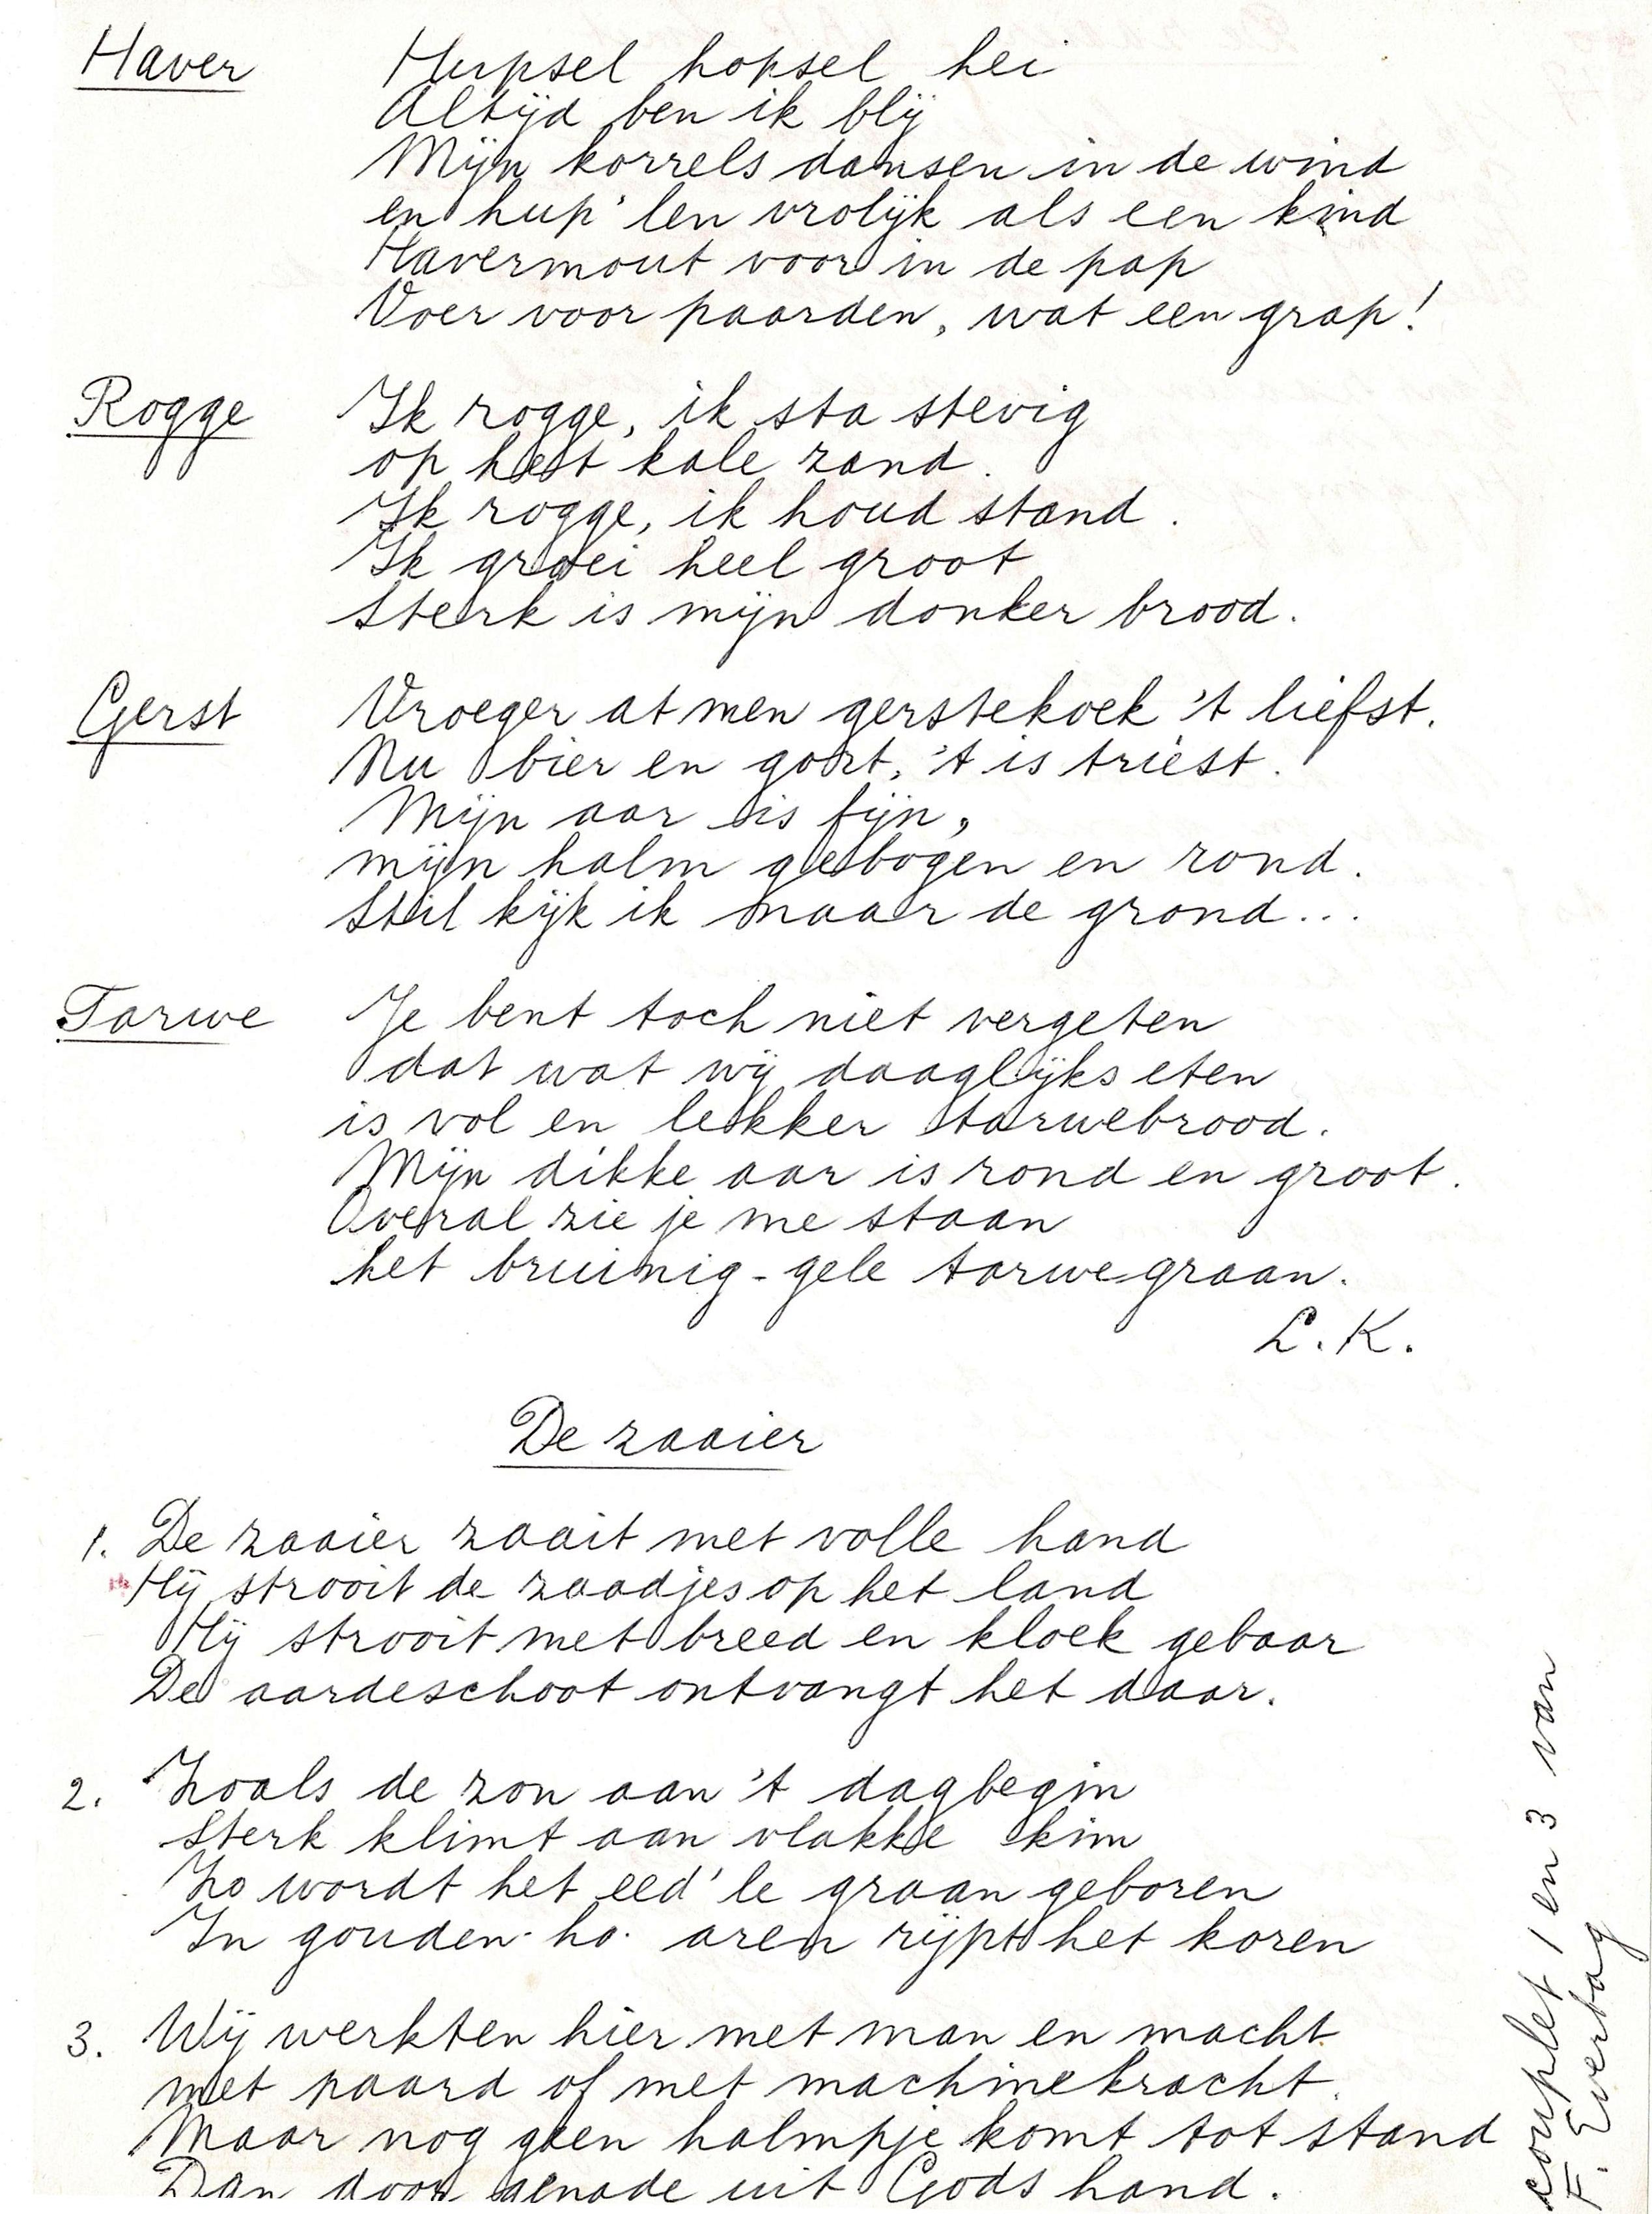 Haver Hupsel hopsel hei
Altijd ben ik blij
Mijn korrels dansen in de wind
en hup'len vrolijk als een kind
Havermout voor in de pap
Voer voor paarden, wat een grap!
Rogge Ik rogge, ik sta stevig
op het kale zand.
Ik rogge, ik houd stand.
Ik groei heel groot
Sterk is mijn donker brood.
Gerst Vroeger at men gerstekoek 't liefst.
Nu bier en gort, 't is triest.
Mijn aar is fijn,
mijn halm gebogen en rond.
Stil kijk ik naar de grond...
Tarwe Je bent toch niet vergeten
dat wat wij daaglijks eten
is vol en lekker tarwebrood.
Mijn dikke aar is rond en groot.
Overal zie je me staan
het bruinig-gele tarwegraan.
L.K.
De zaaier
1. De zaaier zaait met volle hand
Hij strooit de zaadjes op het land
Hij strooit met breed en kloek gebaar
De aardeschoot ontvangt het daar.
2. Zoals de zon aan 't dagbegin
Sterk klimt aan vlakke kim
Zo wordt het eed'le graan geboren
In gouden ho. aren rijpt het koren
3. Wij werkten hier met man en macht
met paard of met machinekracht.
Maar nog geen halmpje komt tot stand
Dan door genade uit Gods hand.
couplet 1 en 3 van
F. Everbag